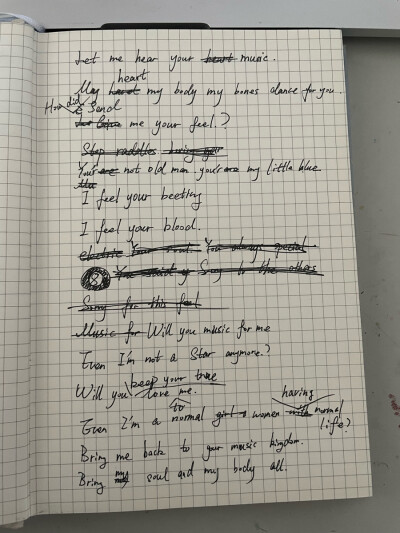 Let me hear your heart music.
heart
May heart my body my bones dance for you.
How did Send
me your feel.?
Stop
You're are not old man you're are my little blue
I feel your beetling
I feel your blood.
electric Your soul. You always special
Song to the others
Song for this
Music for Will you music for me
Even I'm not a Star anymore.?
keep your true
Will you love me.
to having
Even I'm a normal girl women with normal
life?
Bring me back to your music kingdom.
Bring my soul and my body all.